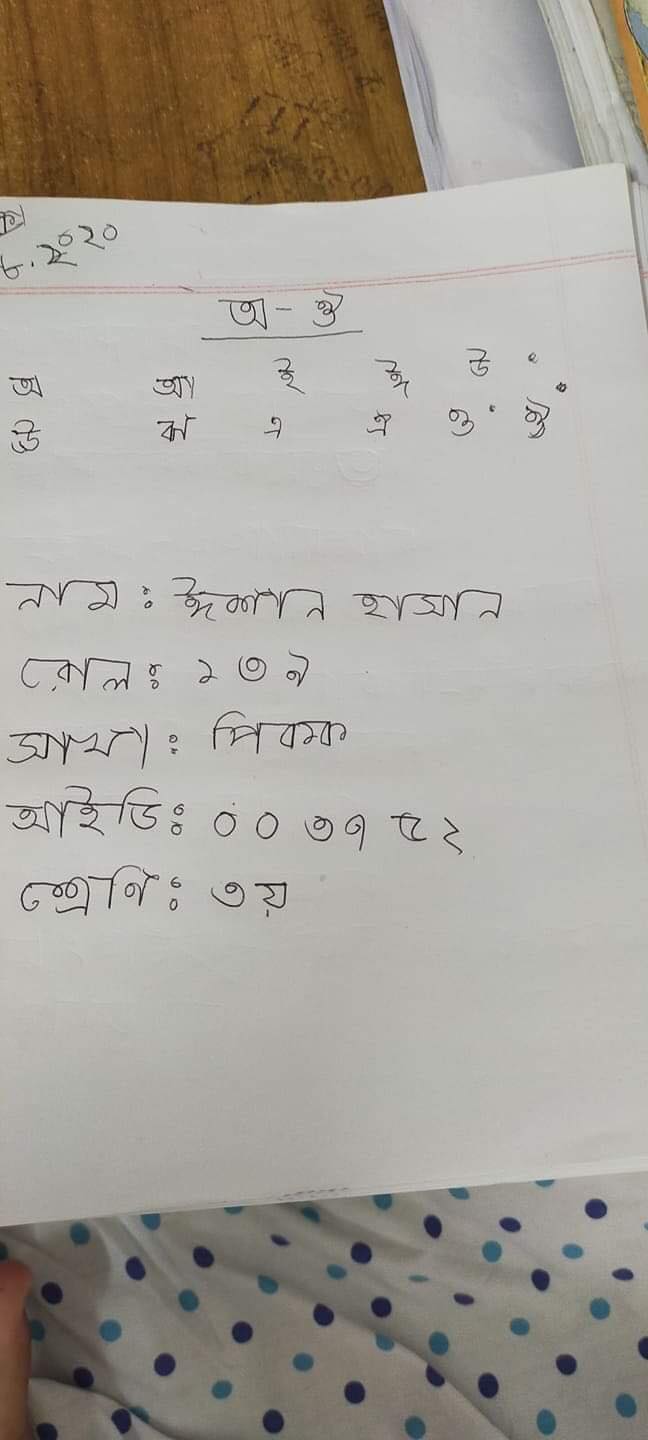 ৮.২০২০
অ - ঔ
অ আ ই ঈ উ
ঊ ঋ এ ঐ ও ঔ
নাম : ঈশান হাসান
রোল : ১৩৯
সাখা :
আইডি : ০০৩৭৫২
শ্রেণি : ৩য়